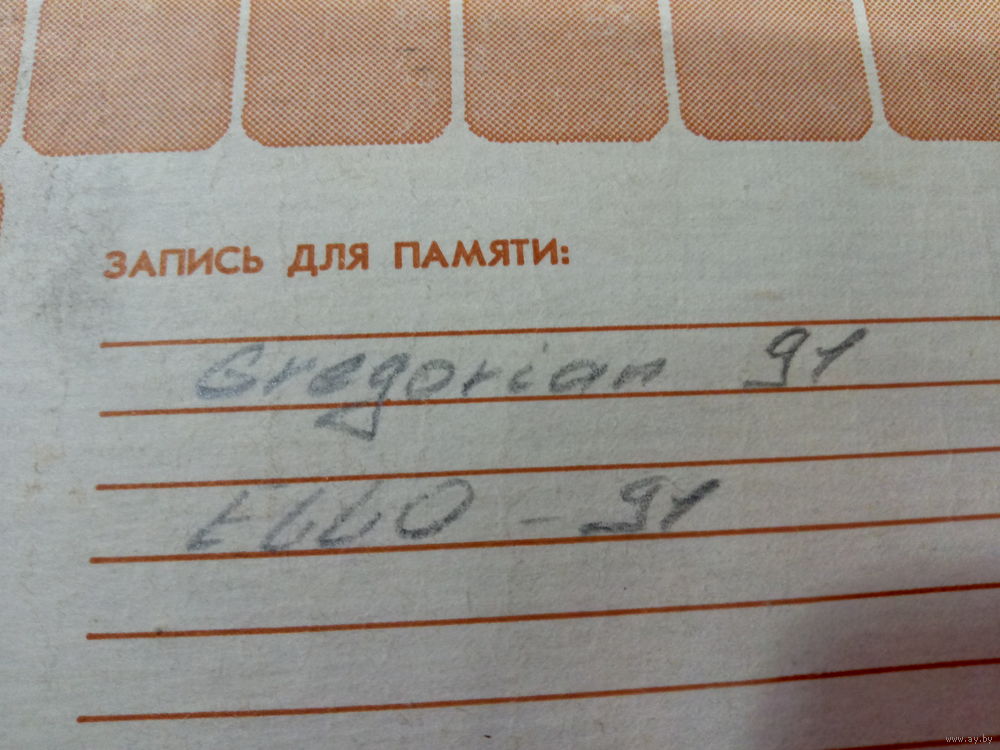 ЗАПИСЬ ДЛЯ ПАМЯТИ:
Gregorian 91
ELLO - 91
www.ay.by